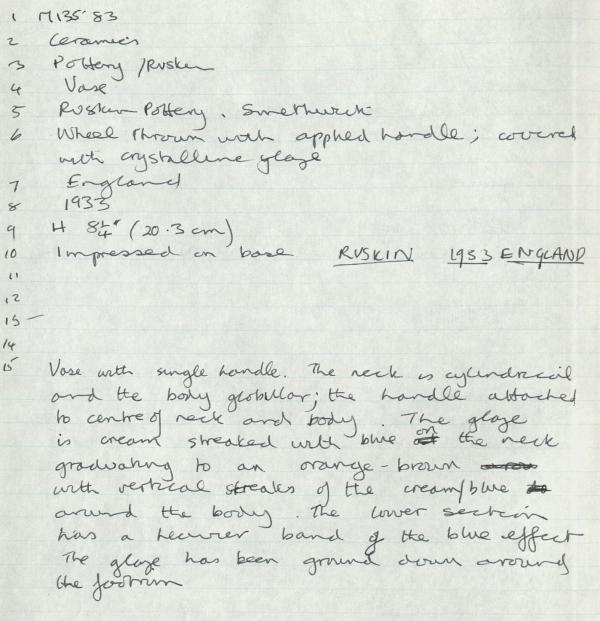 1 M135'83
2 Ceramics
3 Pottery / Ruskin
4 Vase
5 Ruskin Pottery, Smethwick
6 Wheel thrown with applied handle; covered
with crystalline glaze
7 England
8 1933
9 H 8¼" (20.3 cm)
10 Impressed on base RUSKIN 1933 ENGLAND
11
12
13 —
14
15 Vase with single handle. The neck is cylindrical
and the body globular; the handle attached
to centre of neck and body. The glaze
is cream streaked with blue on the neck
graduating to an orange-brown
with vertical streaks of the cream/blue
around the body. The lower section
has a heavier band of the blue effect
The glaze has been ground down around
the footrim